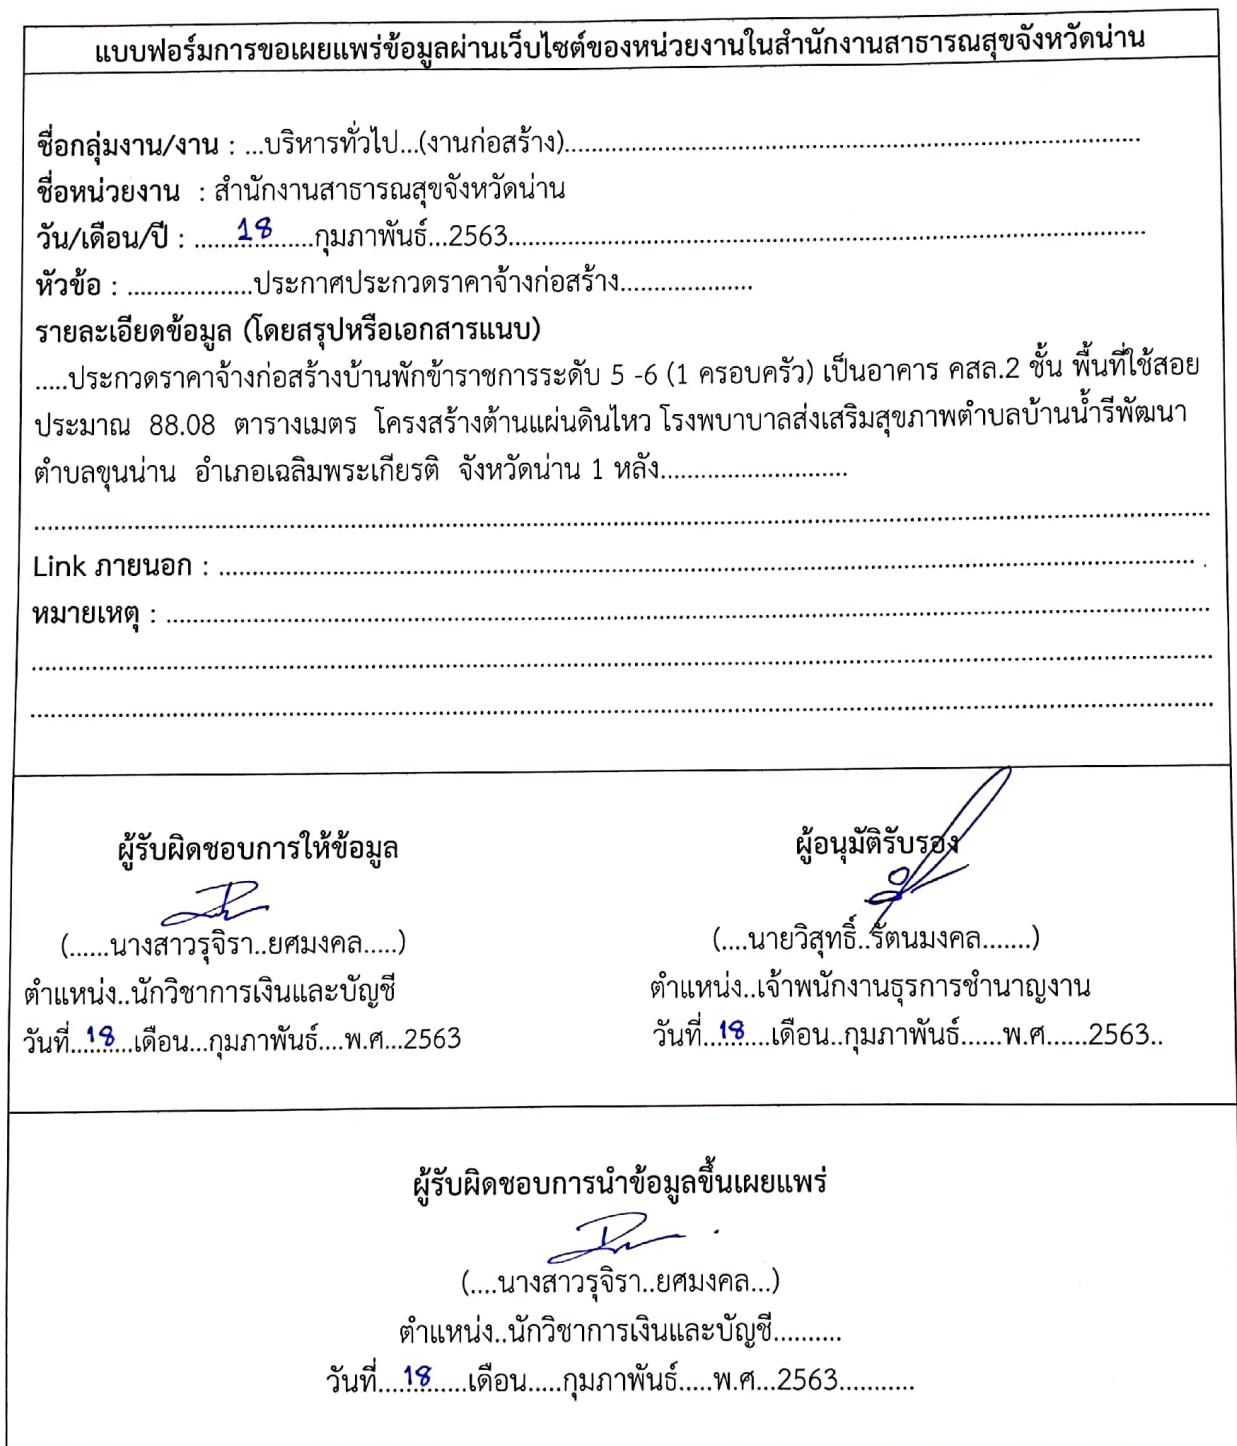 แบบฟอร์มการขอเผยแพร่ข้อมูลผ่านเว็บไซต์ของหน่วยงานในสำนักงานสาธารณสุขจังหวัดน่าน
ชื่อกลุ่มงาน/งาน : ...บริหารทั่วไป...(งานก่อสร้าง)......................................................................................
ชื่อหน่วยงาน : สำนักงานสาธารณสุขจังหวัดน่าน
วัน/เดือน/ปี : .......18.......กุมภาพันธ์...2563................................................................................................
หัวข้อ : ...................ประกาศประกวดราคาจ้างก่อสร้าง....................
รายละเอียดข้อมูล (โดยสรุปหรือเอกสารแนบ)
.....ประกวดราคาจ้างก่อสร้างบ้านพักข้าราชการระดับ 5 -6 (1 ครอบครัว) เป็นอาคาร คสล.2 ชั้น พื้นที่ใช้สอย
ประมาณ 88.08 ตารางเมตร โครงสร้างต้านแผ่นดินไหว โรงพบาบาลส่งเสริมสุขภาพตำบลบ้านน้ำรีพัฒนา
ตำบลขุนน่าน อำเภอเฉลิมพระเกียรติ จังหวัดน่าน 1 หลัง............................
Link ภายนอก : ....................................................................................................................................
หมายเหตุ : ............................................................................................................................................
ผู้รับผิดชอบการให้ข้อมูล
ผู้อนุมัติรับรอง
(......นางสาวรุจิรา..ยศมงคล.....)
(....นายวิสุทธิ์..รัตนมงคล.......)
ตำแหน่ง..นักวิชาการเงินและบัญชี
ตำแหน่ง..เจ้าพนักงานธุรการชำนาญงาน
วันที่..18...เดือน...กุมภาพันธ์....พ.ศ...2563
วันที่..18...เดือน..กุมภาพันธ์......พ.ศ......2563..
ผู้รับผิดชอบการนำข้อมูลขึ้นเผยแพร่
(....นางสาวรุจิรา..ยศมงคล...)
ตำแหน่ง..นักวิชาการเงินและบัญชี..........
วันที่....18.....เดือน.....กุมภาพันธ์.....พ.ศ...2563...........